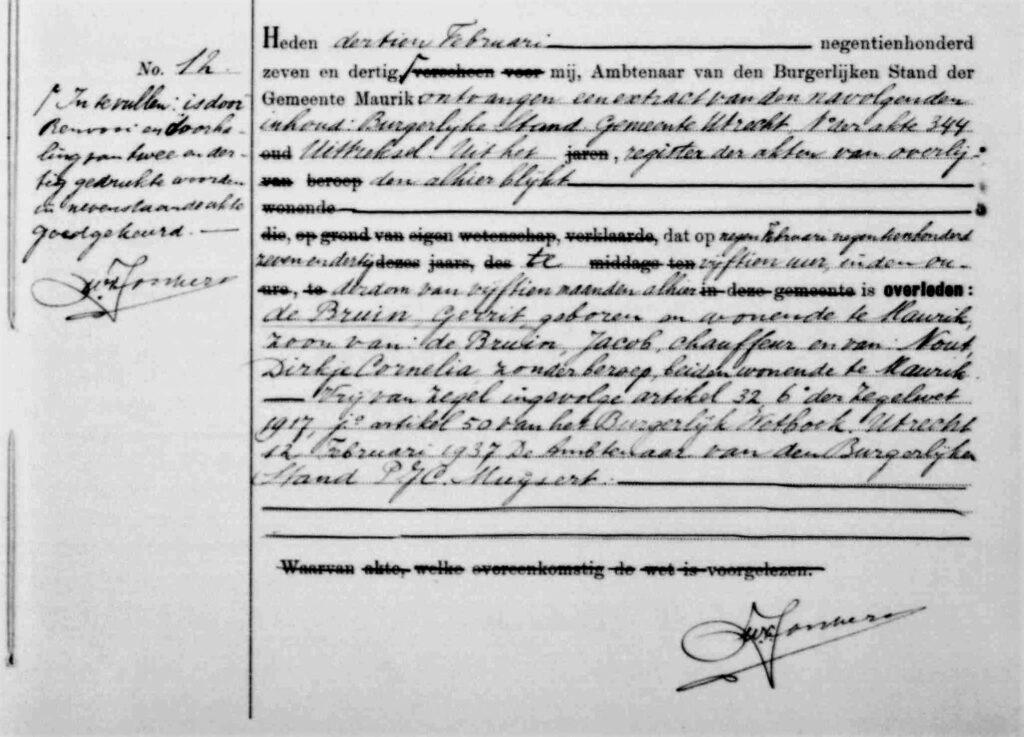 No. 12
Γ In te vullen: is door
Renvooi en doorha-
ling van twee en der-
tig gedrukte woorden
in nevenstaande akte
goedgekeurd. —
Jonkers
Heden dertien Februari negentienhonderd
zeven en dertig, Γ verscheen voor mij, Ambtenaar van den Burgerlijken Stand der
Gemeente Maurik ontvangen een extract van den navolgenden
inhoud: Burgerlijke Stand. Gemeente Utrecht N° der akte 344
oud Uittreksel. Uit het jaren, register der akten van overlij-
van beroep den alhier blijkt
wonende
die, op grond van eigen wetenschap, verklaarde, dat op negen Februari negentienhonderd
zeven en dertig dezes jaars, des te middags ten vijftien uur, in den ou-
ure, te derdom van vijftien maanden alhier in deze gemeente is overleden:
de Bruin, Gerrit, geboren en wonende te Maurik,
zoon van: de Bruin, Jacob, chauffeur en van: Nout,
Dirkje Cornelia, zonder beroep, beiden wonende te Maurik.
— Vrij van zegel ingevolge artikel 32, 6° der Zegelwet
1917, j° artikel 50 van het Burgerlijk Wetboek. Utrecht
12 Februari 1937 De Ambtenaar van den Burgerlijken
Stand P.J.C. Muijsert.
Waarvan akte, welke overeenkomstig de wet is voorgelezen.
Jonkers